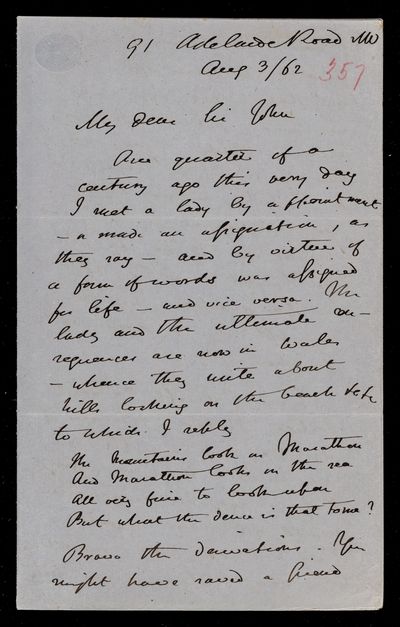 91 Adelaide Road NW
Aug 3/62
357
My dear Sir John
One quarter of a
century ago this very day
I met a lady by appointment
– or made an assignation, as
they say – and by virtue of
a form of words was assigned
for life – and vice versa. The
lady and the ultimate con-
sequences are now in Wales
– whence they write about
hills looking on the beach &c &c
to which I reply
The mountains look on Marathon
And Marathon looks on the sea
All very fine to look upon
But what the deuce is that to me?
Bravo the deviations. You
might have saved a friend